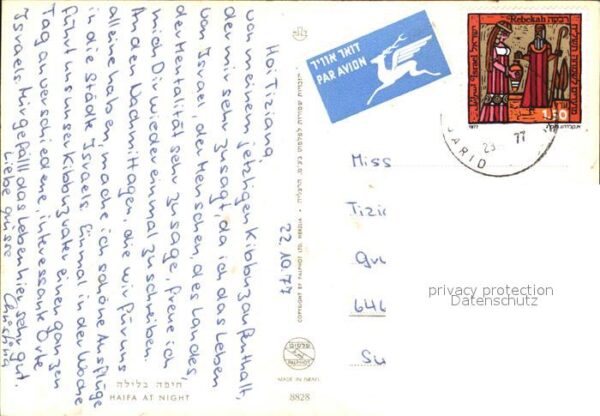 Hoi Tiziana,
von meinem jetzigen Kibbuzaufenthalt,
der mir sehr zusagt, da ich das Leben
von Israel, der Menschen, des Landes,
der Mentalität sehr zusage, freue ich
mich Dir wieder einmal zu schreiben.
An den Nachmittagen, die wir für uns
alleine haben, mache ich schöne Ausflüge
in die Städte Israels. Einmal in der Woche
führt uns unser Kibbuzvater einen ganzen
Tag an verschiedene, interessante Orte
Israels. Mir gefällt das Leben hier sehr gut.
Liebe grüsse
Christina
22.10.77
חיפה בלילה
HAIFA AT NIGHT
COPYRIGHT BY PALPHOT LTD. HERZLIA
פלפוט
PALPHOT
MADE IN ISRAEL
8828
דואר אוויר
PAR AVION
Rebekah רבקה
Israel ישראל
1.50
1977
77
Miss
Tizi
646
Su
privacy protection
Datenschutz